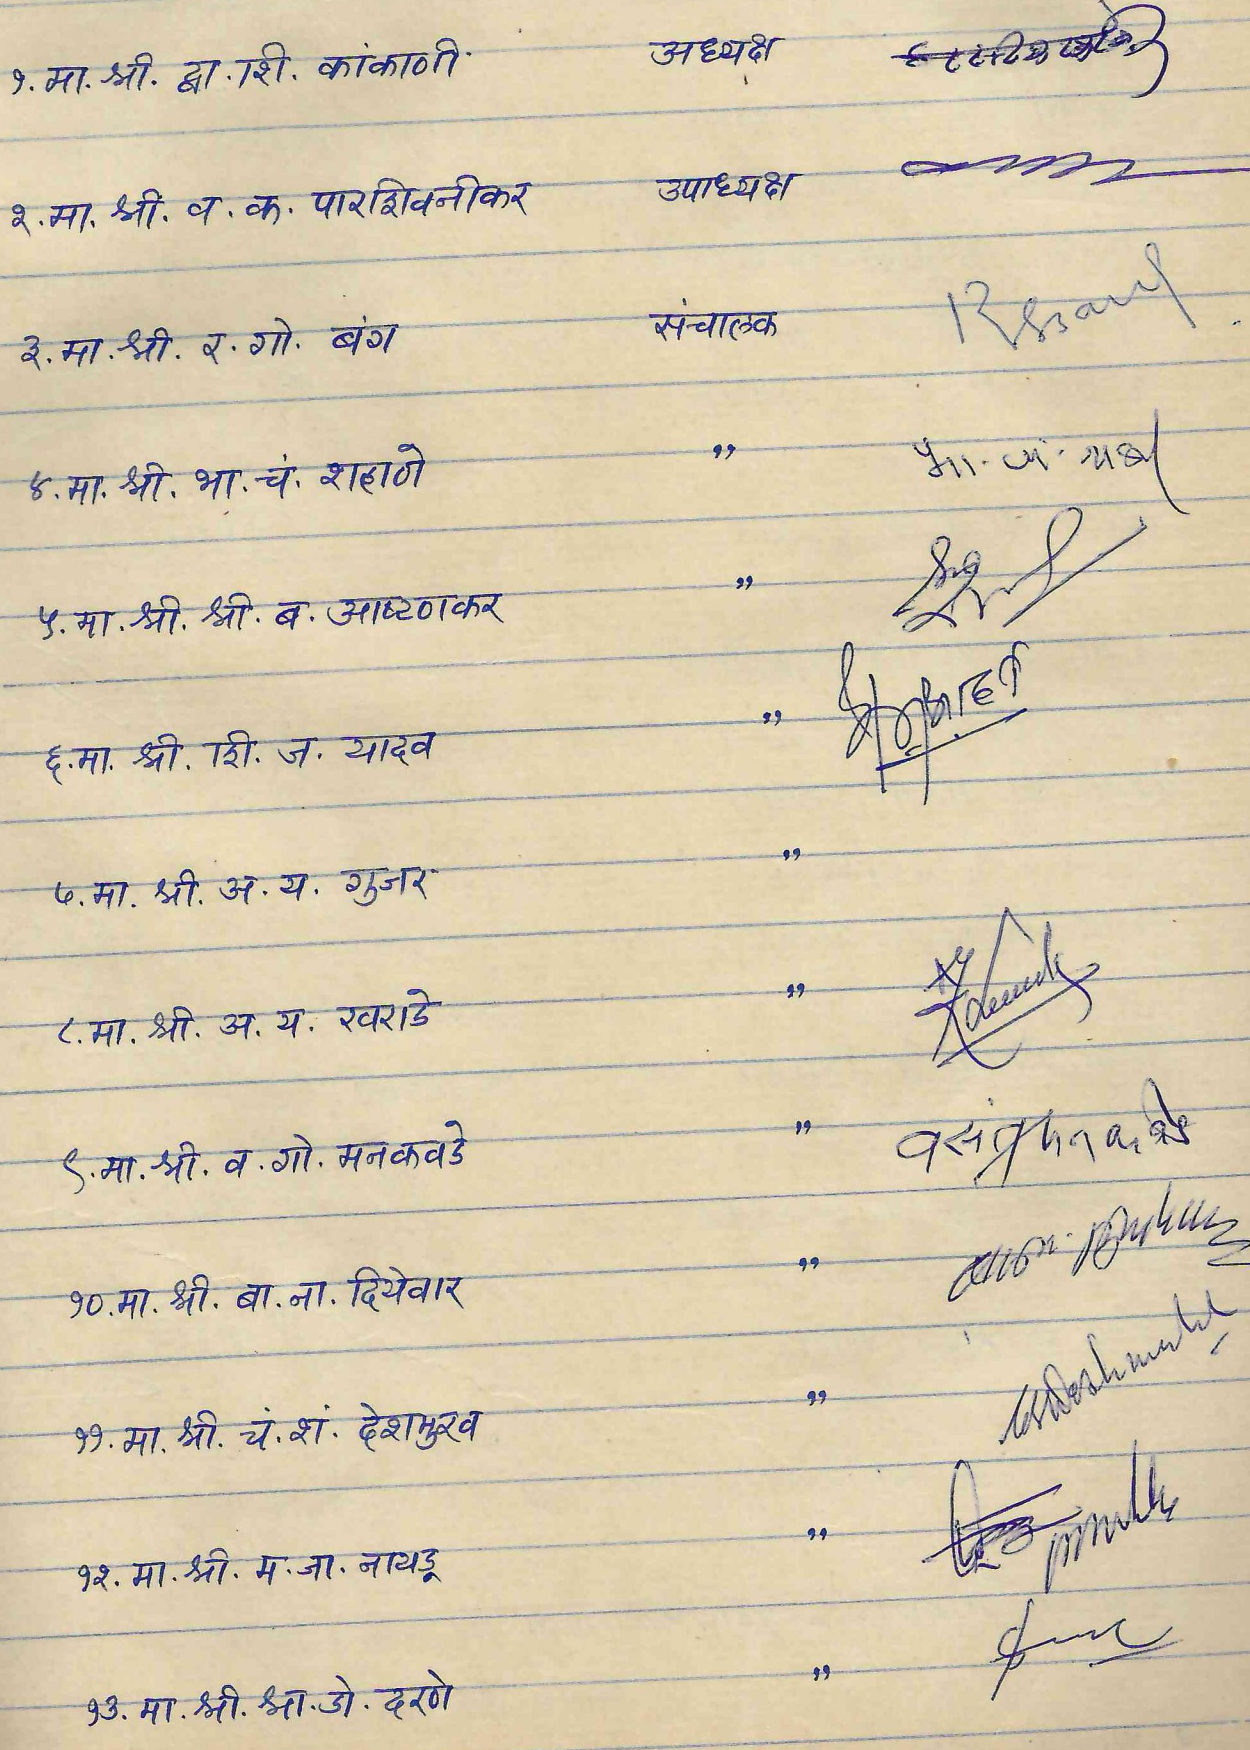 १. मा. श्री. द्वा. शि. कांकाणी अध्यक्ष
२. मा. श्री. व. क. पारशिवनीकर उपाध्यक्ष
३. मा. श्री. र. गो. बंग संचालक
४. मा. श्री. भा. चं. शहाणे "
५. मा. श्री. श्री. ब. आष्टणकर "
६. मा. श्री. शि. ज. यादव "
७. मा. श्री. अ. य. गुजर "
८. मा. श्री. अ. य. खराडे "
९. मा. श्री. व. गो. मनकवडे "
१०. मा. श्री. बा. ना. दियेवार "
११. मा. श्री. चं. शं. देशमुख Deshmukh "
१२. मा. श्री. म. जा. नायडू "
१३. मा. श्री. श्रा. डो. दरणे "